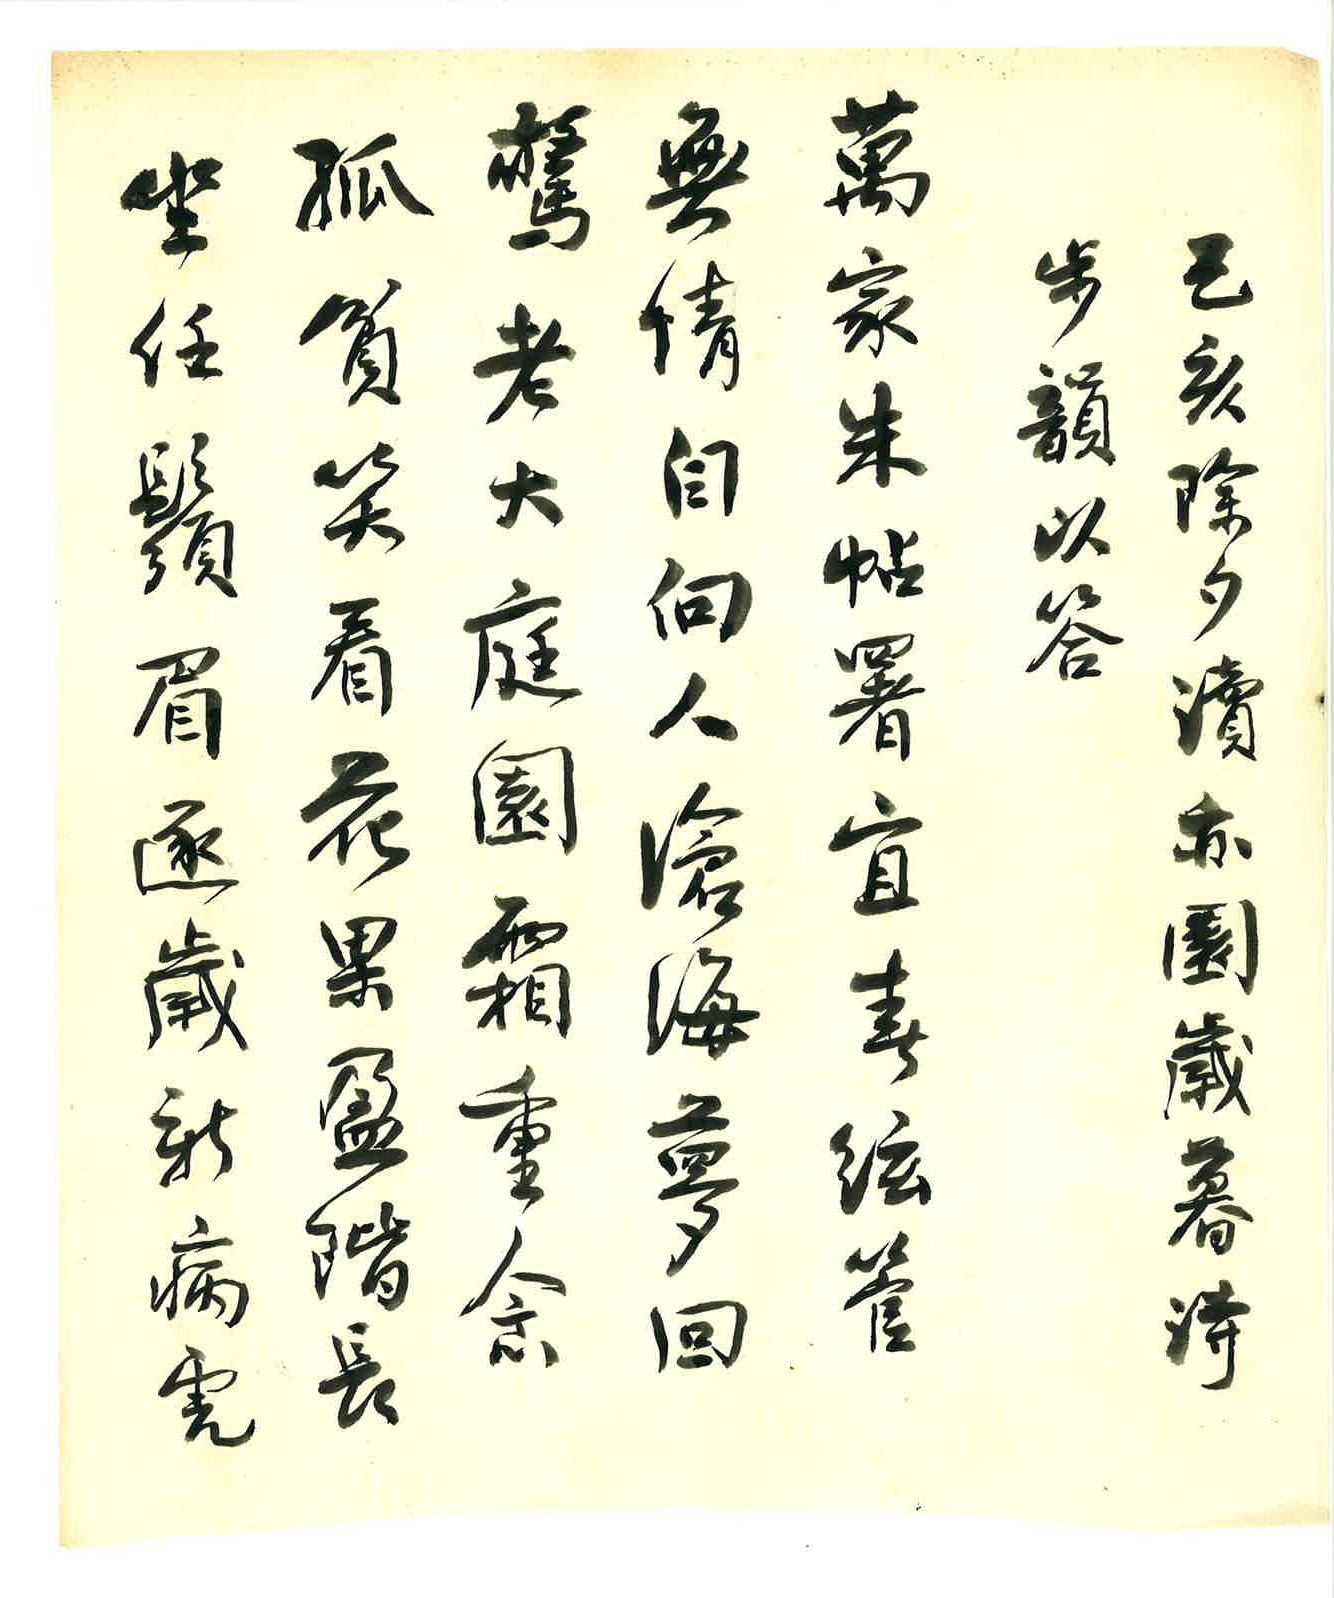 己亥除夕讀亦園歲暮詩
步韻以答
萬家朱帖署宜春絃管
無情自向人滄海夢回
驚老大庭園霜重念
孤貧笑看花果盈階長
坐任鬚眉逐歲新病虎